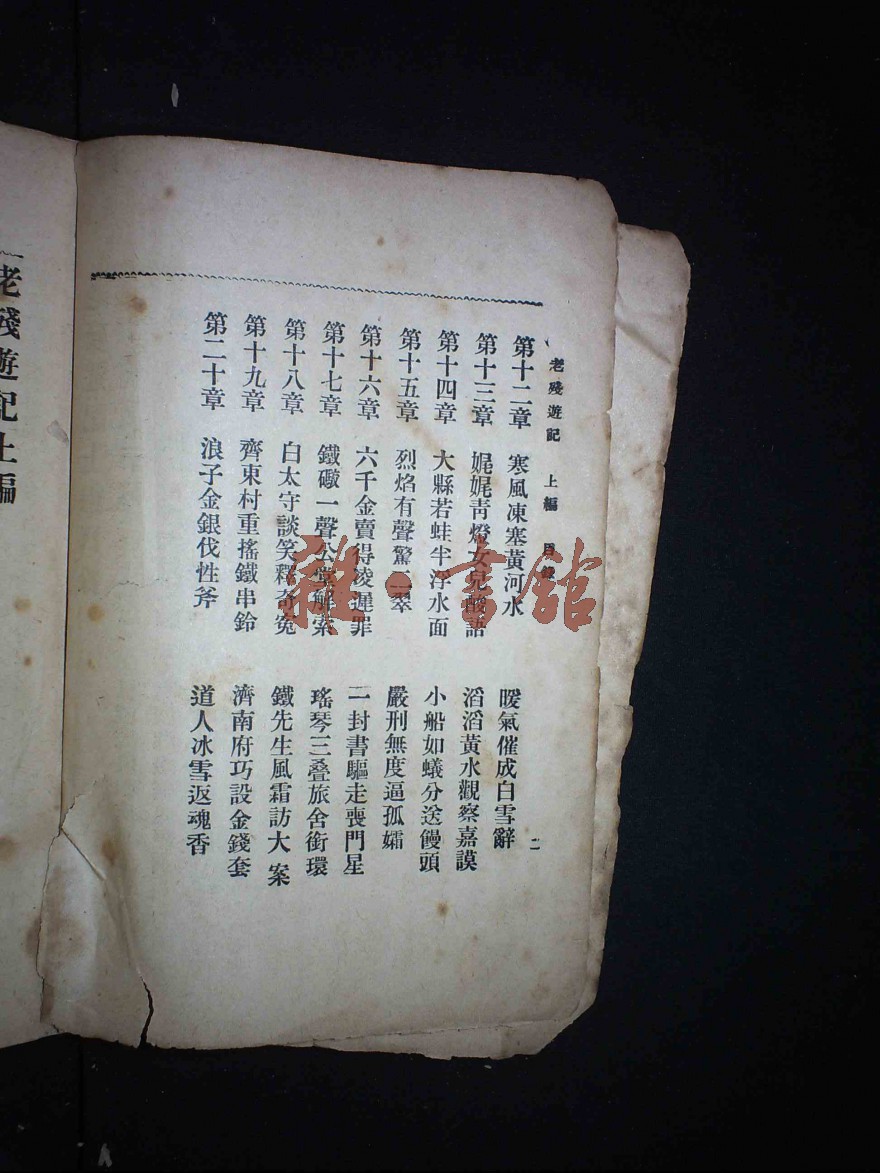 老殘遊記 上編 目錄 二
第十二章 寒風凍塞黃河水 暖氣催成白雪辭
第十三章 娓娓青燈女兒酸語 滔滔黃水觀察嘉謨
第十四章 大縣若蛙半浮水面 小船如蟻分送饅頭
第十五章 烈焰有聲驚二翠 嚴刑無度逼孤孀
第十六章 六千金賣得凌遲罪 一封書驅走喪門星
第十七章 鐵礮一聲公堂解索 瑤琴三叠旅舍銜環
第十八章 白太守談笑釋奇冤 鐵先生風霜訪大案
第十九章 齊東村重搖鐵串鈴 濟南府巧設金錢套
第二十章 浪子金銀伐性斧 道人冰雪返魂香
老殘遊記上編
雜·書館